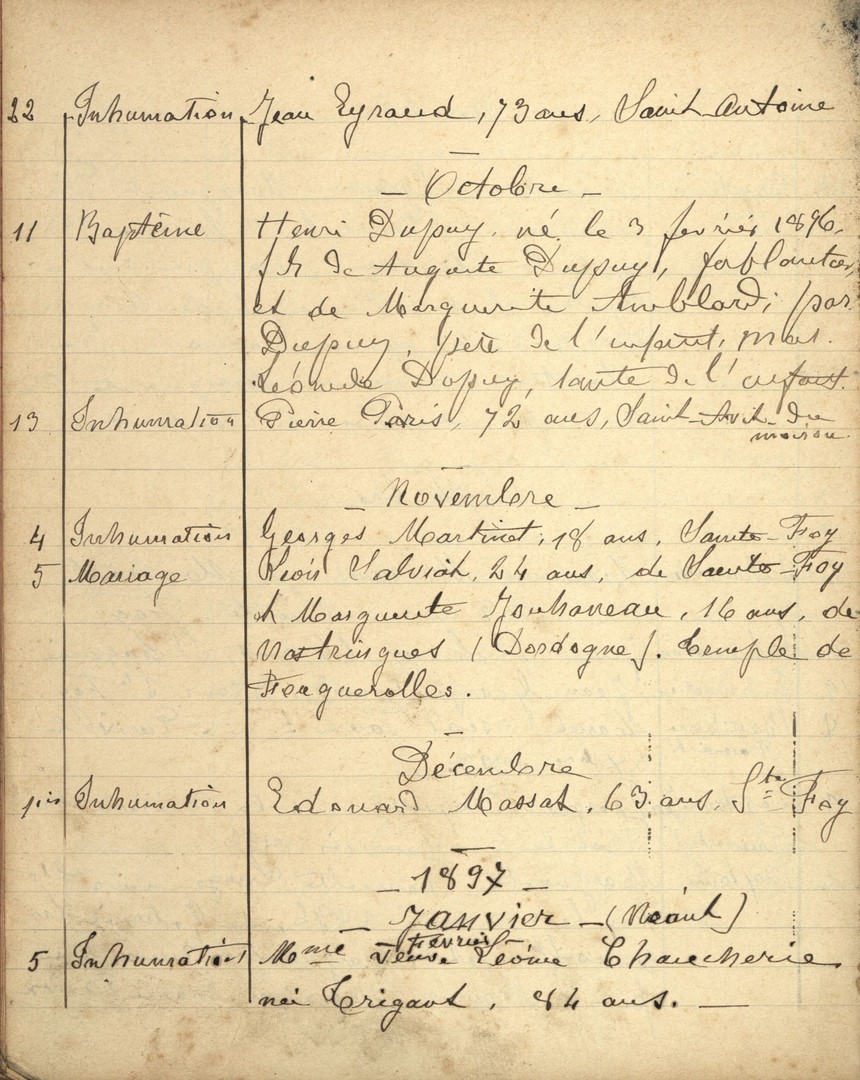 22 Inhumation Jean Eyraud, 73 ans, Saint-Antoine
— Octobre —
11 Baptême Henri Dupuy, né le 3 février 1896,
fils de Auguste Dupuy, ferblantier,
et de Marguerite Amblard; par
Dupuy, père de l'enfant, mar.
Léonide Dupuy, tante de l'enfant.
13 Inhumation Pierre Paris, 72 ans, Saint-Avit-du
moiron.
— Novembre —
4 Inhumation Georges Martinet, 18 ans, Sainte-Foy
5 Mariage Salviat, 24 ans, de Sainte-Foy
et Marguerite Jouhaneau, 16 ans, de
Nastringues (Dordogne). Temple de
Fouguerolles.
— Décembre —
1er Inhumation Edouard Massat, 63 ans, Ste Foy
— 1897 —
— Janvier — (Néant)
Février
5 Inhumation Mme Veuve Léonce Chaucherie
née Trigant, 84 ans. —